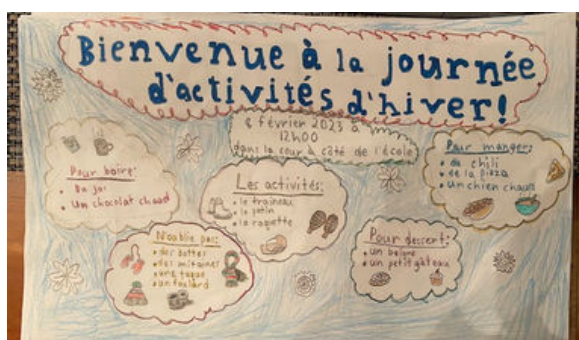 Bienvenue à la journée
d'activités d'hiver!
8 février 2023 à
12h00
dans la cour à côté de l'école
Pour boire:
• Du jus
• Un chocolat chaud
Les activités:
• le traineau
• le patin
• la raquette
Pour manger:
• du chili
• de la pizza
• un chien chaud
N'oublie pas:
• des bottes
• des mitaines
• une tuque
• un foulard
Pour dessert:
• un beigne
• un petit gâteau